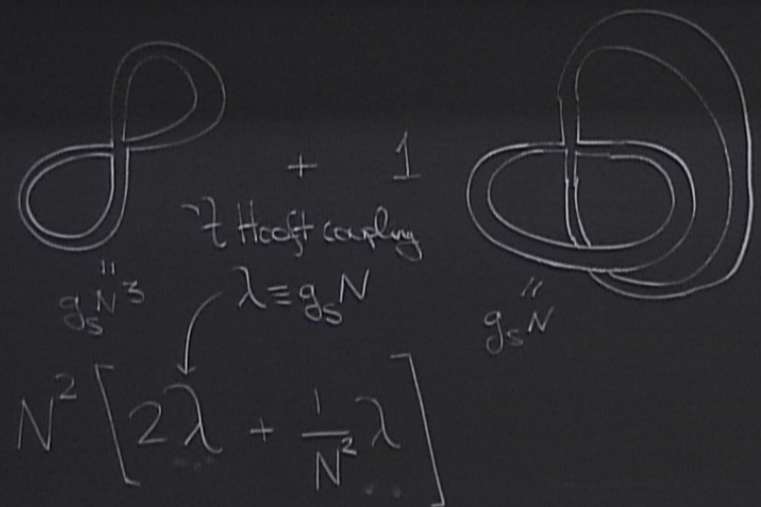 + 1
't Hooft coupling
λ ≡ g_s N
" g_s N^3
" g_s N
N^2 [ 2λ + 1/N^2 λ ]